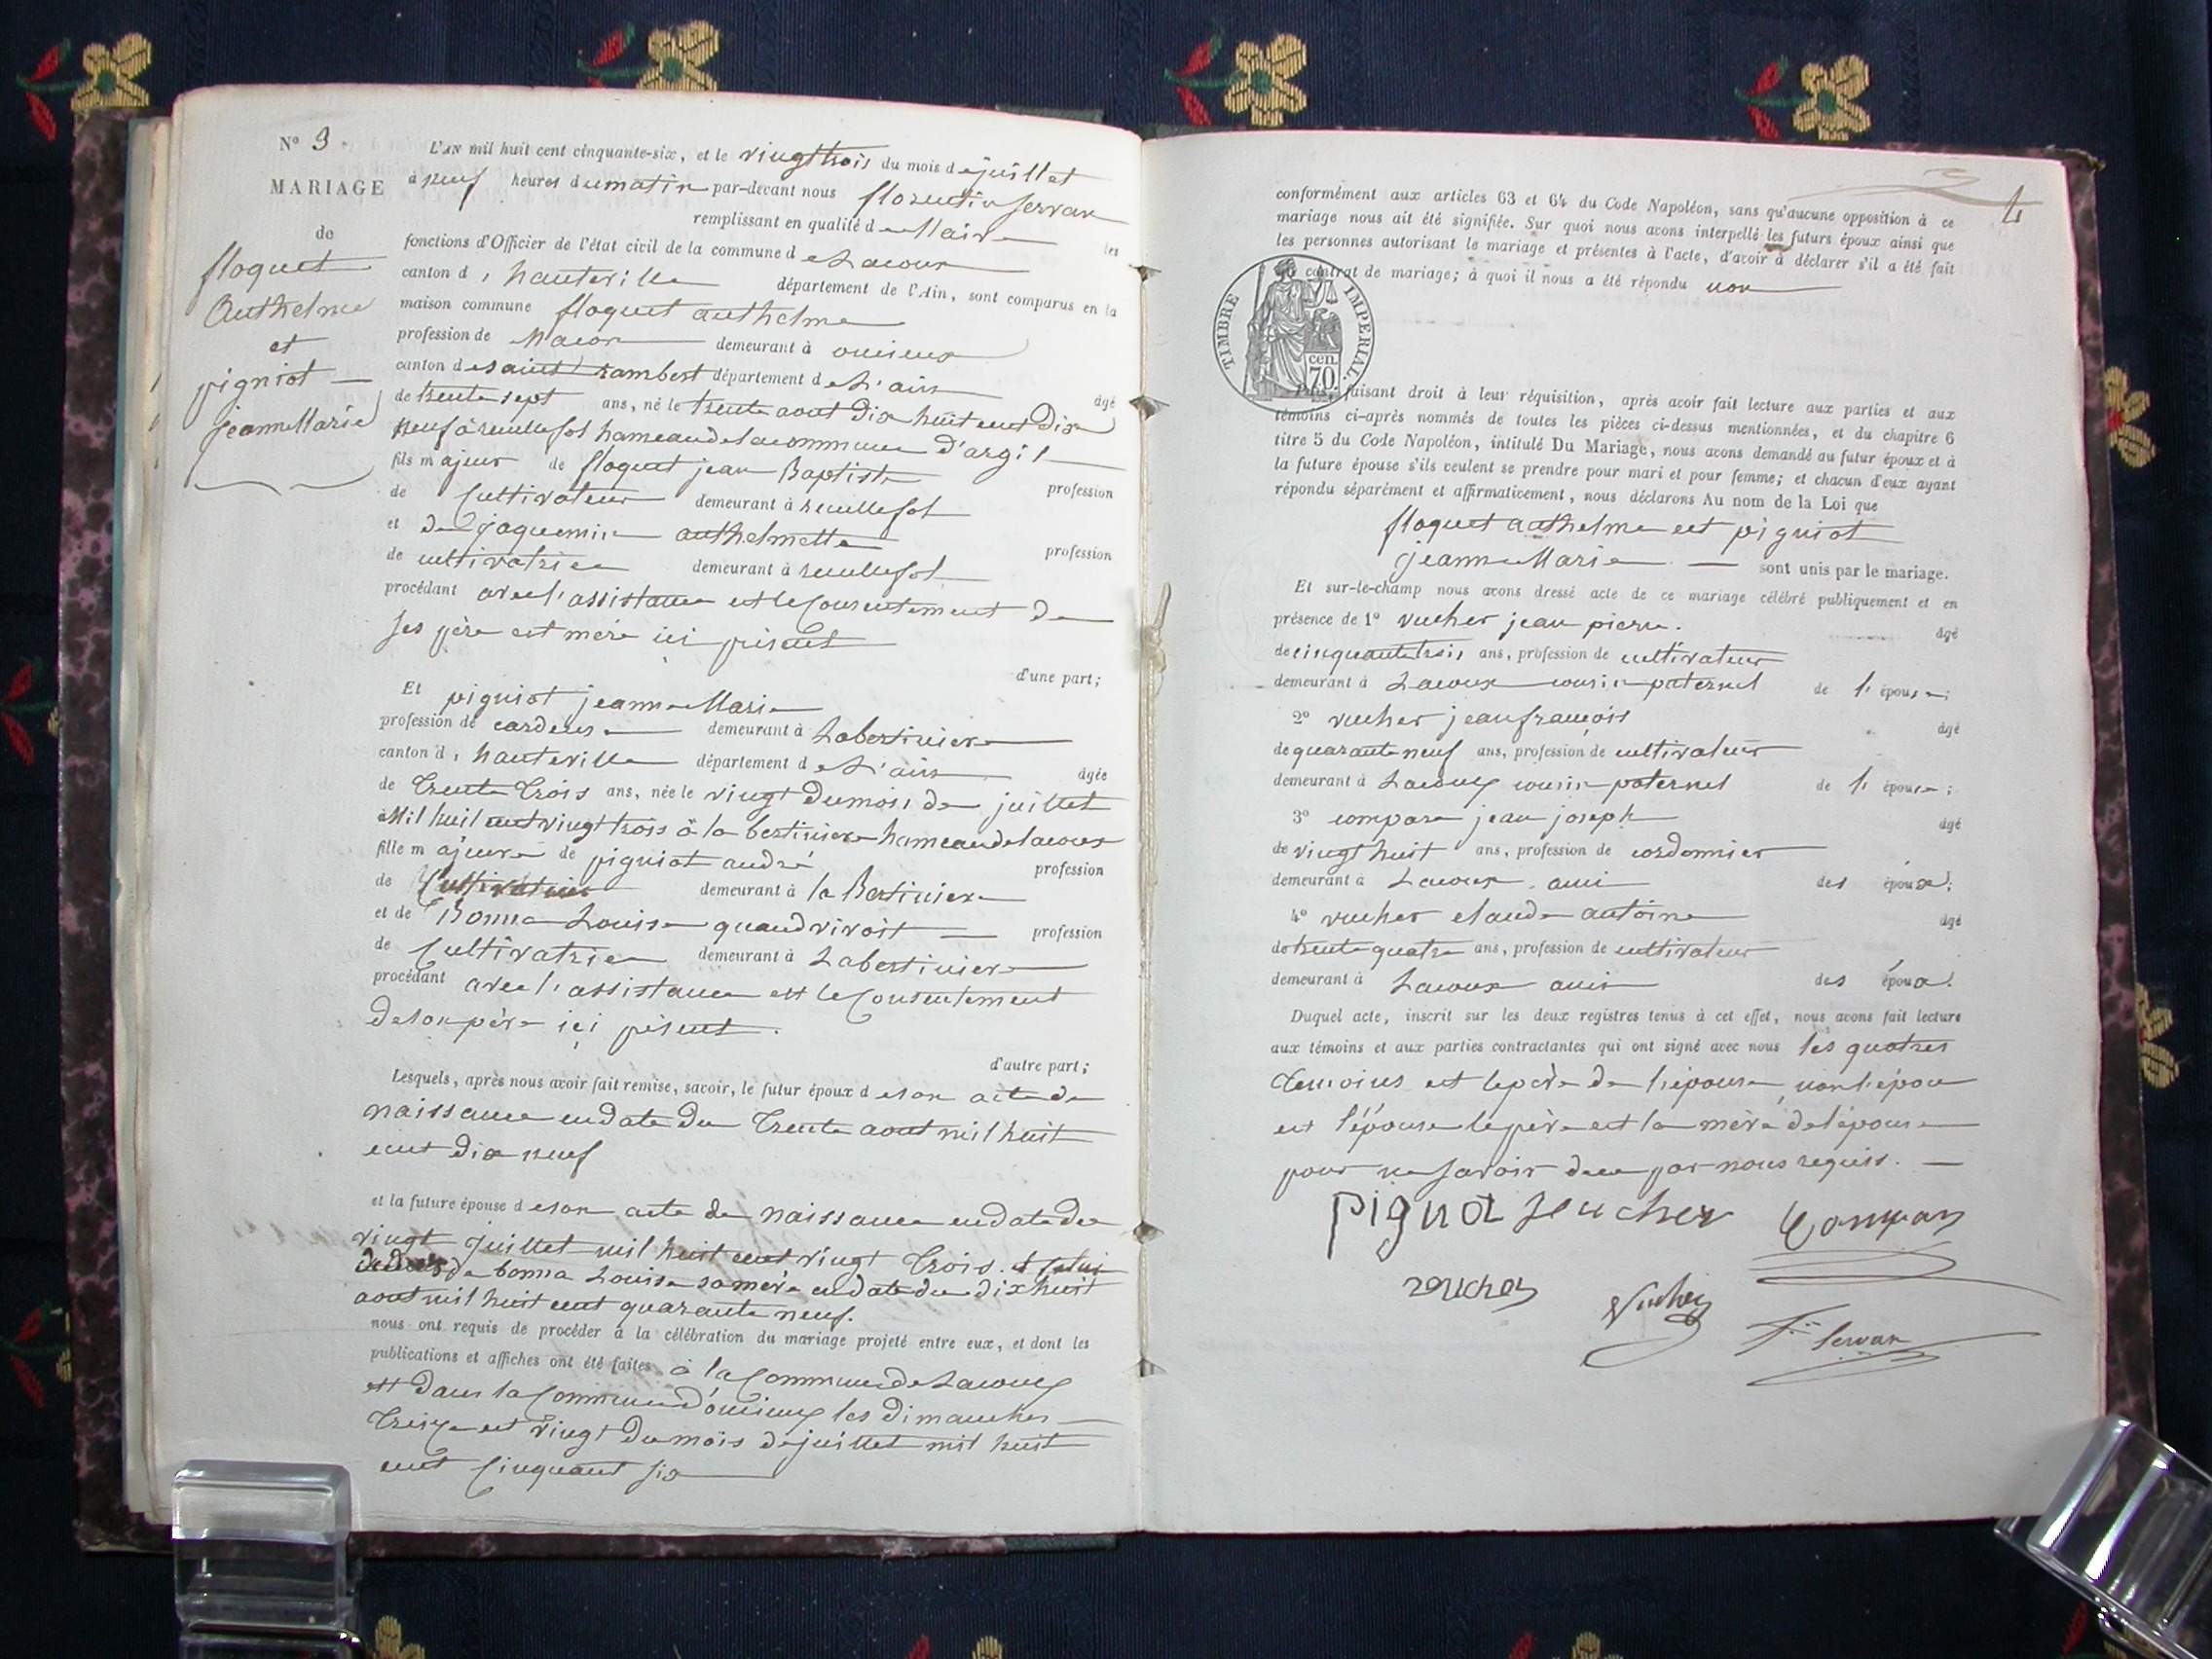 N° 3.
MARIAGE
de
floquet
Anthelme
et
pigniot
jeanne Marie
L'AN mil huit cent cinquante-six, et le vingt trois du mois de juillet
à neuf heures du matin par-devant nous florentin servan
remplissant en qualité de Maire les
fonctions d'Officier de l'état civil de la commune de Lacoux
canton d'hauteville département de l'Ain, sont comparus en la
maison commune floquet anthelme
profession de Macon demeurant à oncieux
canton de saint rambert département de L'ain âgé
de trente sept ans, né le trente aout dix huit cent dix
neuf à reculesol hameau de la commune d'argil
fils majeur de floquet jean Baptiste profession
de Cultivateur demeurant à reculesol
et de joquemin anthelmette profession
de cultivatrice demeurant à reculesol
procédant avec l'assistance et le Consentement de
ses père est mère ici présent
d'une part;
Et pigniot jeanne Marie
profession de cardeuse demeurant à Labertiniere
canton d'hauteville département de L'ain âgée
de Trente Trois ans, née le vingt du mois de juillet
Mil huit cent vingt trois à la bertiniere hameau de lacoux
fille majeure de pigniot andré profession
de Cultivateur demeurant à la Bertiniere
et de Bonna Louise quand vivoit profession
de Cultivatrice demeurant à Labertiniere
procédant avec l'assistance ett le Consentement
de son père ici présent.
d'autre part;
Lesquels, après nous avoir fait remise, savoir, le futur époux de son acte de
naissance en date du Trente aout mil huit
cent dix neuf
et la future épouse de son acte de naissance en date du
vingt juillet mil huit cent vingt Trois. et celui
de decès de bonna Louise sa mère en date du dix huit
aout mil huit cent quarante neuf.
nous ont requis de procéder à la célébration du mariage projeté entre eux, et dont les
publications et affiches ont été faites à la Commune de Lacoux
ett dans la Commune d'oncieux les Dimanches
Treize et vingt du mois de juillet mil huit
cent Cinquant six
4
conformément aux articles 63 et 64 du Code Napoléon, sans qu'aucune opposition à ce
mariage nous ait été signifiée. Sur quoi nous avons interpellé les futurs époux ainsi que
les personnes autorisant le mariage et présentes à l'acte, d'avoir à déclarer s'il a été fait
contrat de mariage; à quoi il nous a été répondu non
TIMBRE IMPERIAL
cen.
70.
Puis, faisant droit à leur réquisition, après avoir fait lecture aux parties et aux
témoins ci-après nommés de toutes les pièces ci-dessus mentionnées, et du chapitre 6
titre 5 du Code Napoléon, intitulé Du Mariage, nous avons demandé au futur époux et à
la future épouse s'ils veulent se prendre pour mari et pour femme; et chacun d'eux ayant
répondu séparément et affirmativement, nous déclarons Au nom de la Loi que
floquet anthelme et pigniot
jeanne Marie sont unis par le mariage.
Et sur-le-champ nous avons dressé acte de ce mariage célébré publiquement et en
présence de 1° vucher jean pierre. âgé
de cinquante trois ans, profession de cultivateur
demeurant à Lacoux cousin paternel de l'épouse;
2° vucher jean françois âgé
de quarante neuf ans, profession de cultivateur
demeurant à Lacoux cousin paternel de l'épouse;
3° compare jean joseph âgé
de vingt huit ans, profession de cordonnier
demeurant à Lacoux. ami des époux;
4° vucher claude antoine âgé
de trente quatre ans, profession de cultivateur
demeurant à Lacoux ami des époux.
Duquel acte, inscrit sur les deux registres tenus à cet effet, nous avons fait lecture
aux témoins et aux parties contractantes qui ont signé avec nous les quatres
Temoins et le père de l'épouse, non l'époux
est l'épouse le père est la mère de l'épouse
pour ne savoir de ce par nous requiss.
pignot vucher Compar
voucher Vucher
F Servan